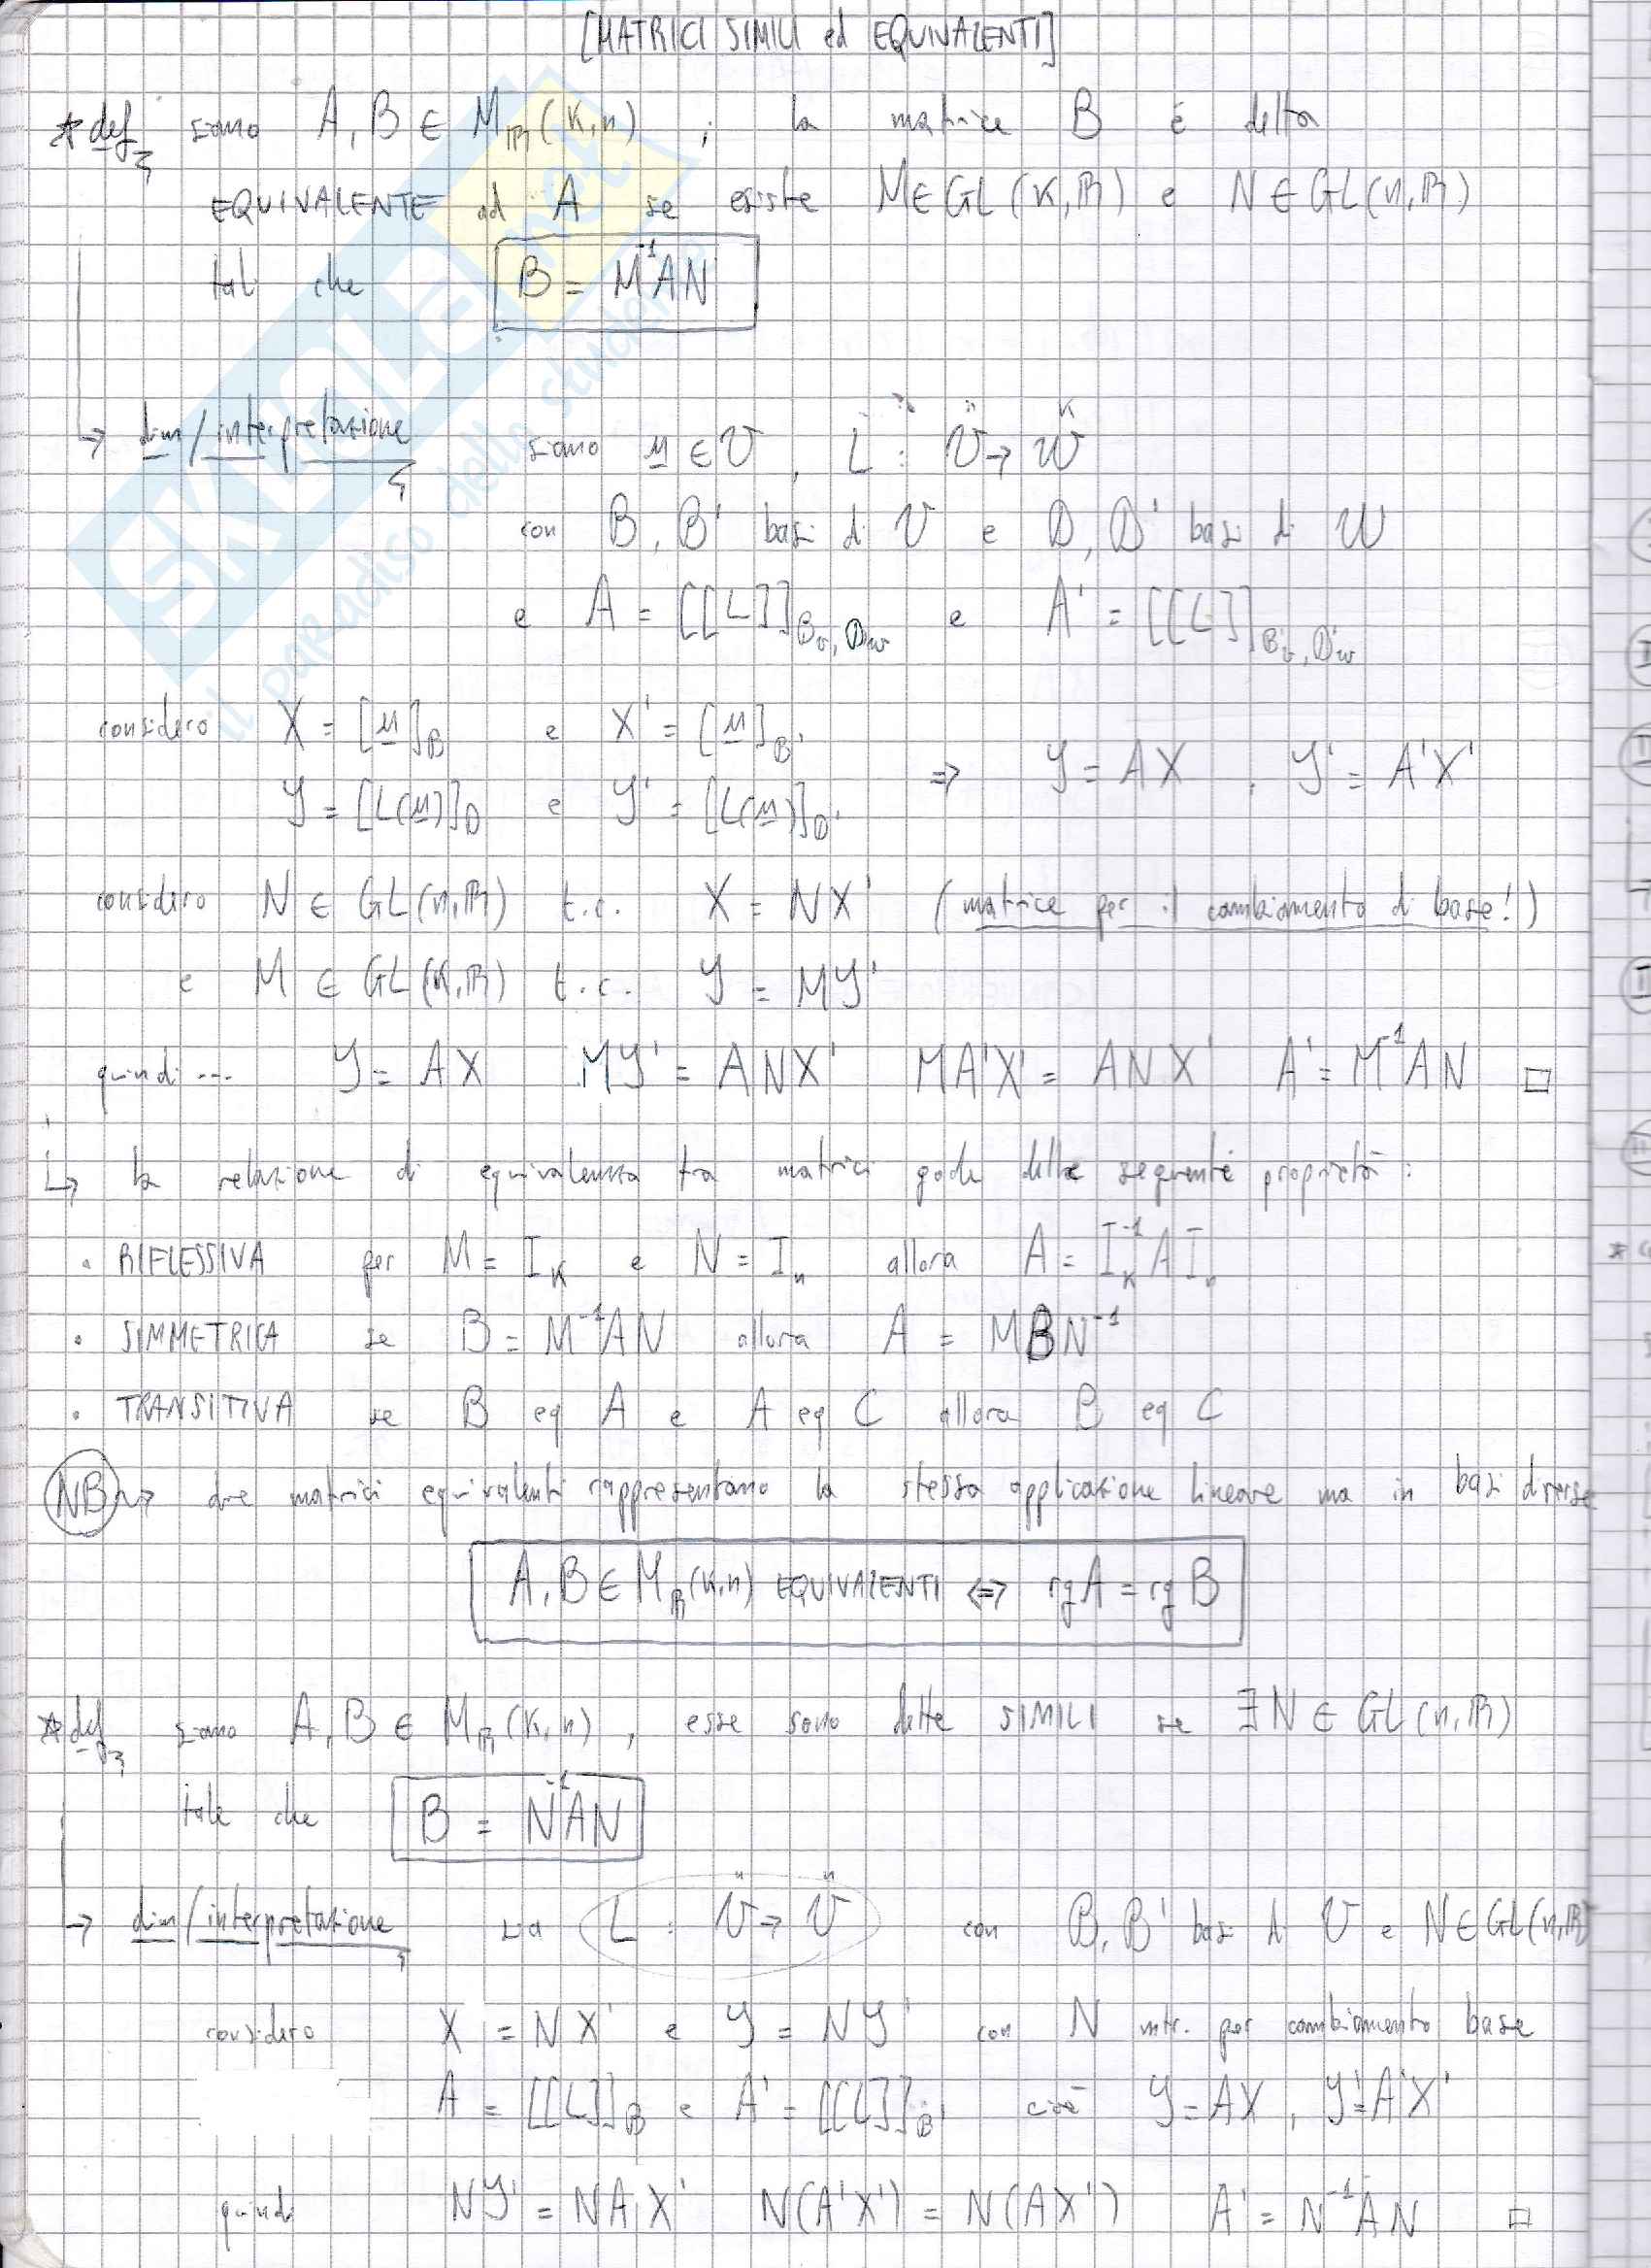 [MATRICI SIMILI ed EQUIVALENTI]
* def siano A, B ∈ M_ℝ(K,n) ; la matrice B è detta
EQUIVALENTE ad A se esiste M ∈ GL(K,ℝ) e N ∈ GL(n,ℝ)
tali che B = M⁻¹AN
→ dim/interpretazione siano u ∈ V, L : Vⁿ → Wᴷ
con B, B' basi di V e D, D' basi di W
e A = [[L]]_{Bv, Dw} e A' = [[L]]_{B'v, D'w}
considero X = [u]_B e X' = [u]_B'
Y = [L(u)]_D e Y' = [L(u)]_D' ⇒ Y = AX , Y' = A'X'
considero N ∈ GL(n,ℝ) t.c. X = NX' (matrice per il cambiamento di base!)
e M ∈ GL(K,ℝ) t.c. Y = MY'
quindi ... Y = AX MY' = ANX' MA'X' = ANX' A' = M⁻¹AN □
↳ la relazione di equivalenza tra matrici gode delle seguenti proprietà :
• RIFLESSIVA per M = I_K e N = I_n allora A = I_K⁻¹ A I_n
• SIMMETRICA se B = M⁻¹AN allora A = MBN⁻¹
• TRANSITIVA se B eq A e A eq C allora B eq C
NB → due matrici equivalenti rappresentano la stessa applicazione lineare ma in basi diverse
A, B ∈ M_ℝ(K,n) EQUIVALENTI ⇔ rg A = rg B
* def siano A, B ∈ M_ℝ(K,n) , esse sono dette SIMILI se ∃ N ∈ GL(n,ℝ)
tale che B = N⁻¹AN
→ dim/interpretazione sia L : Vⁿ → Vⁿ con B, B' basi di V e N ∈ GL(n,ℝ)
considero X = NX' e Y = NY' con N mtr. per cambiamento base
A = [[L]]_B e A' = [[L]]_B' cioè Y = AX , Y' = A'X'
quindi NY' = NAX' N(A'X') = N(AX') A' = N⁻¹AN □
SKUOLA.net
il paradiso dello studente